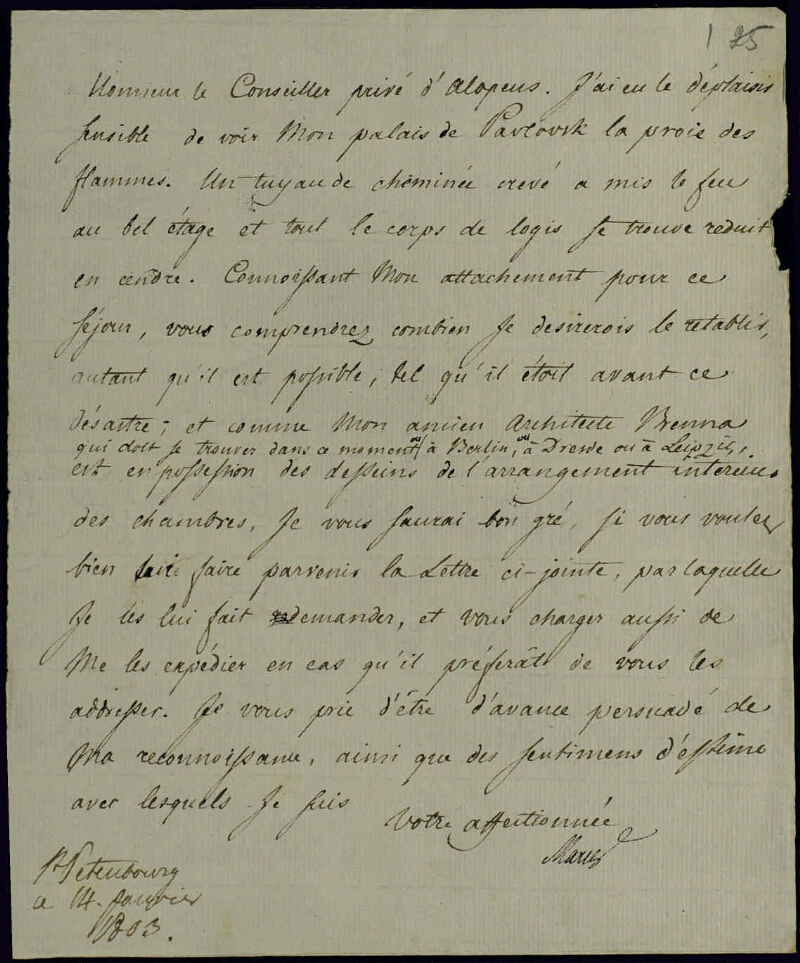 125
Monsieur le Conseiller privé d'Alopeus. J'ai eu le déplaisir
sensible de voir Mon palais de Pavlovsk la proie des
flammes. Un tuyau de cheminée crevé a mis le feu
au bel étage et tout le corps de logis se trouve reduit
en cendre. Connoissant Mon attachement pour ce
séjour, vous comprendrez combien Je desirerois le retablir,
autant qu'il est possible, tel qu'il étoit avant ce
désastre; et comme Mon ancien Architecte Brenna
qui doit se trouver dans ce moment ou à Berlin, ou à Dresde ou à Leipzic,
est en possession des desseins de l'arrangement interieur
des chambres, Je vous saurai bon gré, si vous voulez
bien faire parvenir la Lettre ci-jointe, par laquelle
Je les lui fait demander, et vous charger aussi de
Me les expédier en cas qu'il préferât de vous les
addresser. Je vous prie d'être d'avance persuadé de
Ma reconnoissance, ainsi que des sentimens d'estime
avec lesquels Je suis
Votre affectionnée
Marie
St Petersbourg
ce 14. Janvier
1803.